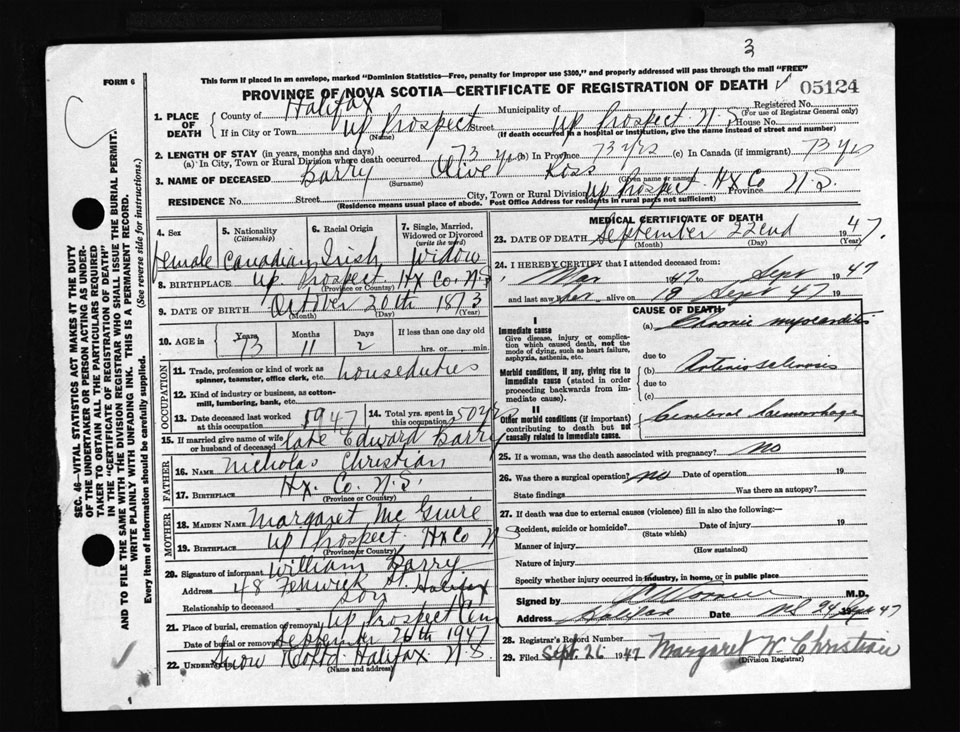 3
FORM 6
This form if placed in an envelope, marked "Dominion Statistics—Free, penalty for improper use $300," and properly addressed will pass through the mail "FREE"
PROVINCE OF NOVA SCOTIA—CERTIFICATE OF REGISTRATION OF DEATH 05124
1. PLACE OF DEATH County of Halifax Municipality of Registered No. (For use of Registrar General only)
If in City or Town Up Prospect Street Up Prospect N.S. House No.
(Name) (If death occurred in a hospital or institution, give the name instead of street and number)
2. LENGTH OF STAY (in years, months and days)
(a) In City, Town or Rural Division where death occurred 73 yrs (b) In Province 73 yrs (c) In Canada (if immigrant) 73 yrs
3. NAME OF DECEASED Barry Olive
(Surname) (Given name or names)
RESIDENCE No. Street City, Town or Rural Division Up Prospect Hx Co Province N.S.
(Residence means usual place of abode. Post Office Address for residents in rural parts not sufficient)
4. Sex 5. Nationality (Citizenship) 6. Racial Origin 7. Single, Married, Widowed or Divorced (write the word)
Female Canadian Irish Widow
8. BIRTHPLACE Up. Prospect. Hx Co. N.S
(Province or Country)
9. DATE OF BIRTH October 20th 1873
(Month) (Day) (Year)
10. AGE in Years Months Days If less than one day old
73 11 2 hrs. or min.
OCCUPATION
11. Trade, profession or kind of work as spinner, teamster, office clerk, etc. houseduties
12. Kind of industry or business, as cotton-mill, lumbering, bank, etc.
13. Date deceased last worked at this occupation 1947 14. Total yrs. spent in this occupation 50 yrs
15. If married give name of wife or husband of deceased late Edward Barry
FATHER
16. NAME Nicholas Christian
17. BIRTHPLACE Hx. Co. N.S.
(Province or Country)
MOTHER
18. MAIDEN NAME Margaret Mc Guire
19. BIRTHPLACE Up Prospect. Hx Co N S
(Province or Country)
20. Signature of informant William Barry
Address 48 Fenwick St. Halifax
Relationship to deceased son
21. Place of burial, cremation or removal Up Prospect Cem
Date of burial or removal September 26th 1947
22. UNDERTAKER Snow Halifax. N.S
MEDICAL CERTIFICATE OF DEATH
23. DATE OF DEATH September 22nd 1947.
(Month) (Day) (Year)
24. I HEREBY CERTIFY that I attended deceased from:
Mar 1947 to Sept 1947
and last saw her alive on 18 Sept 47 19
CAUSE OF DEATH
I
Immediate cause (a) Chronic myocarditis
Give disease, injury or complication which caused death, not the mode of dying, such as heart failure, asphyxia, asthenia, etc.
due to
Morbid conditions, if any, giving rise to immediate cause (stated in order proceeding backwards from immediate cause).
(b) Arteriosclerosis
due to
(c)
II
Other morbid conditions (if important) contributing to death but not causally related to immediate cause.
Cerebral haemorrhage
25. If a woman, was the death associated with pregnancy? no
26. Was there a surgical operation? no Date of operation 19
State findings Was there an autopsy?
27. If death was due to external causes (violence) fill in also the following:
Accident, suicide or homicide? Date of injury 19
(State which)
Manner of injury (How sustained)
Nature of injury
Specify whether injury occurred in industry, in home, or in public place
Signed by M.D.
Address Halifax Date NS 24 Sept 47
28. Registrar's Record Number
29. Filed Sept. 26 1947 Margaret W. Christian
(Division Registrar)
SEC. 46—VITAL STATISTICS ACT MAKES IT THE DUTY OF THE UNDERTAKER OR PERSON ACTING AS UNDERTAKER TO OBTAIN ALL THE PARTICULARS REQUIRED IN THE "CERTIFICATE OF REGISTRATION OF DEATH" AND TO FILE THE SAME WITH THE DIVISION REGISTRAR WHO SHALL ISSUE THE BURIAL PERMIT.
WRITE PLAINLY WITH UNFADING INK. THIS IS A PERMANENT RECORD.
Every item of information should be carefully supplied. (See reverse side for instructions.)